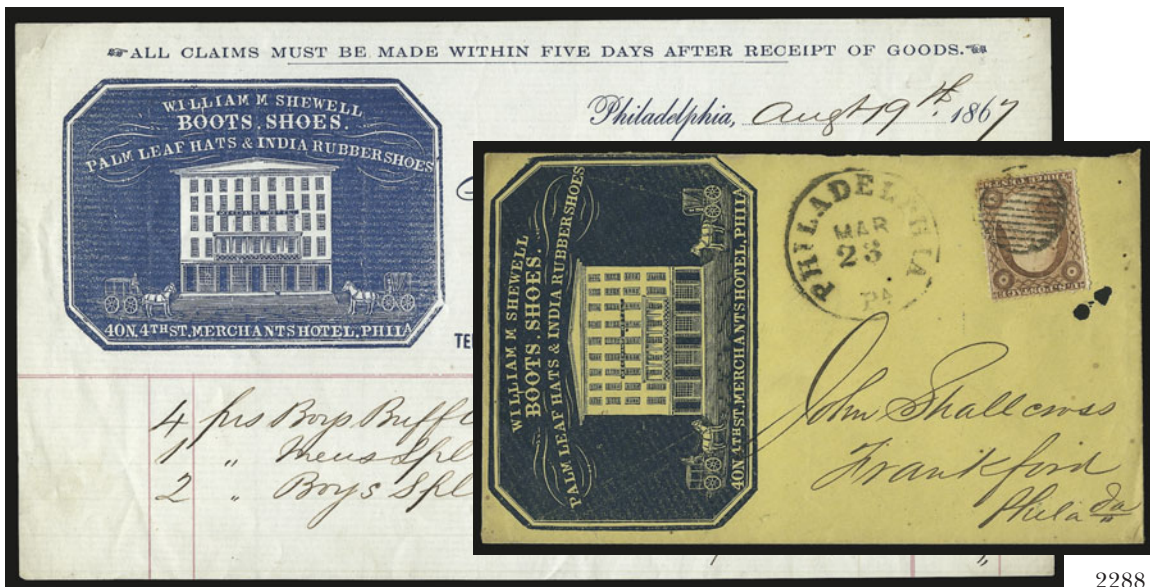 ☞ALL CLAIMS MUST BE MADE WITHIN FIVE DAYS AFTER RECEIPT OF GOODS.☜
WILLIAM M SHEWELL
BOOTS, SHOES.
PALM LEAF HATS & INDIA RUBBER SHOES
MERCHANTS HOTEL
40 N. 4TH ST, MERCHANTS HOTEL, PHILA
Philadelphia, Augt 19th. 1867
TE
4 prs Boys Buff
1 " Mens Spl
2 " Boys Spl
WILLIAM M SHEWELL
BOOTS. SHOES.
PALM LEAF HATS & INDIA RUBBER SHOES
40 N 4TH ST, MERCHANTS HOTEL, PHILA
PHILADELPHIA
MAR
23
PA
John Shallcross
Frankford
Phila
2288